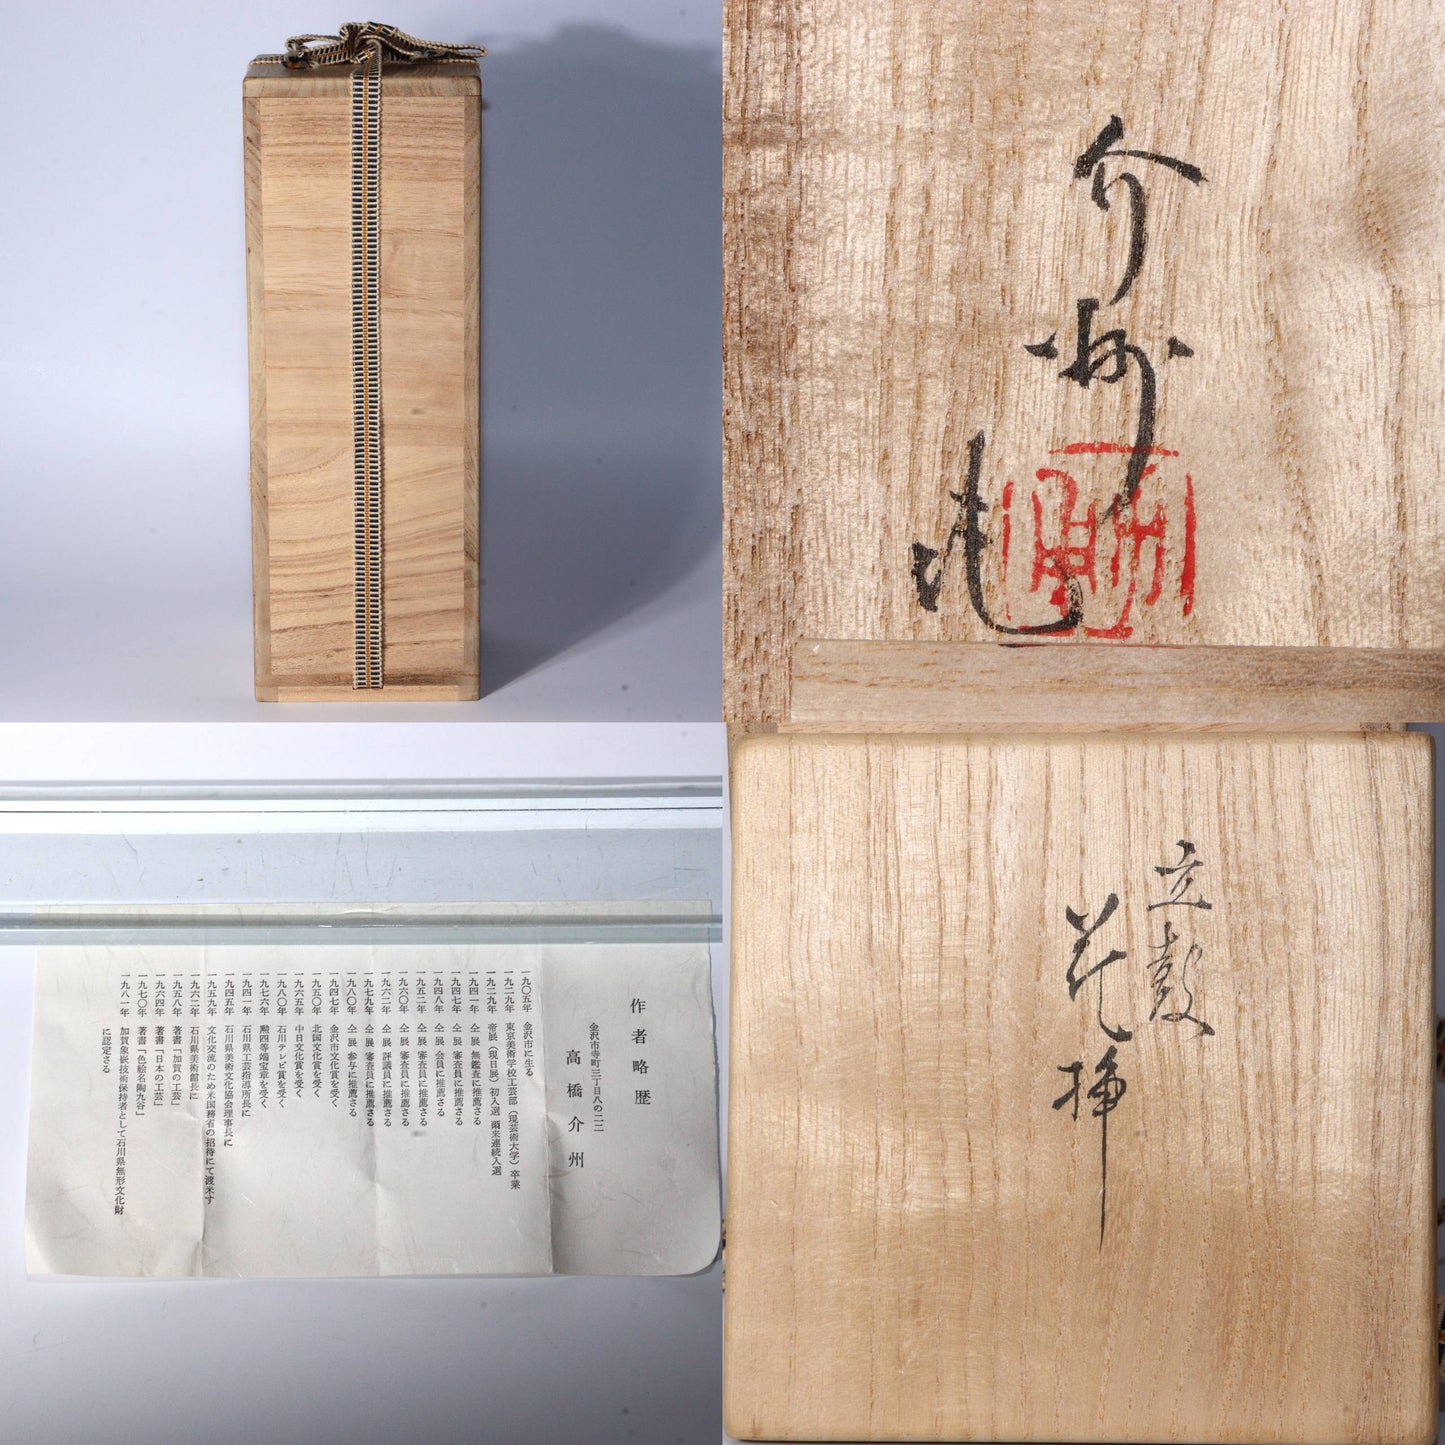 介州
造
作者略歴
金沢市寺町三丁目八の二二
高橋介州
一九〇五年 金沢市に生る
一九二九年 東京美術学校工芸部（現芸術大学）卒業
一九二九年 帝展（現日展）初入選 爾来連続入選
一九四一年 仝 展 無鑑査に推薦さる
一九四七年 仝 展 審査員に推薦さる
一九四八年 仝 展 会員に推薦さる
一九五二年 仝 展 審査員に推薦さる
一九六〇年 仝 展 審査員に推薦さる
一九六二年 仝 展 評議員に推薦さる
一九七九年 仝 展 審査員に推薦さる
一九八〇年 仝 展 参与に推薦さる
一九四七年 金沢市文化賞を受く
一九五〇年 北国文化賞を受く
一九六五年 中日文化賞を受く
一九八〇年 石川テレビ賞を受く
一九七六年 勲四等瑞宝章を受く
一九四一年 石川県工芸指導所長に
一九四五年 石川県美術文化協会理事長に
一九五九年 文化交流のため米国務省の招待にて渡米す
一九六二年 石川県美術館長に
一九五八年 著書「加賀の工芸」
一九六四年 著書「日本の工芸」
一九七〇年 著書「色絵名陶九谷」
一九八一年 加賀象嵌技術保持者として石川県無形文化財
に認定さる
立鼓
花挿